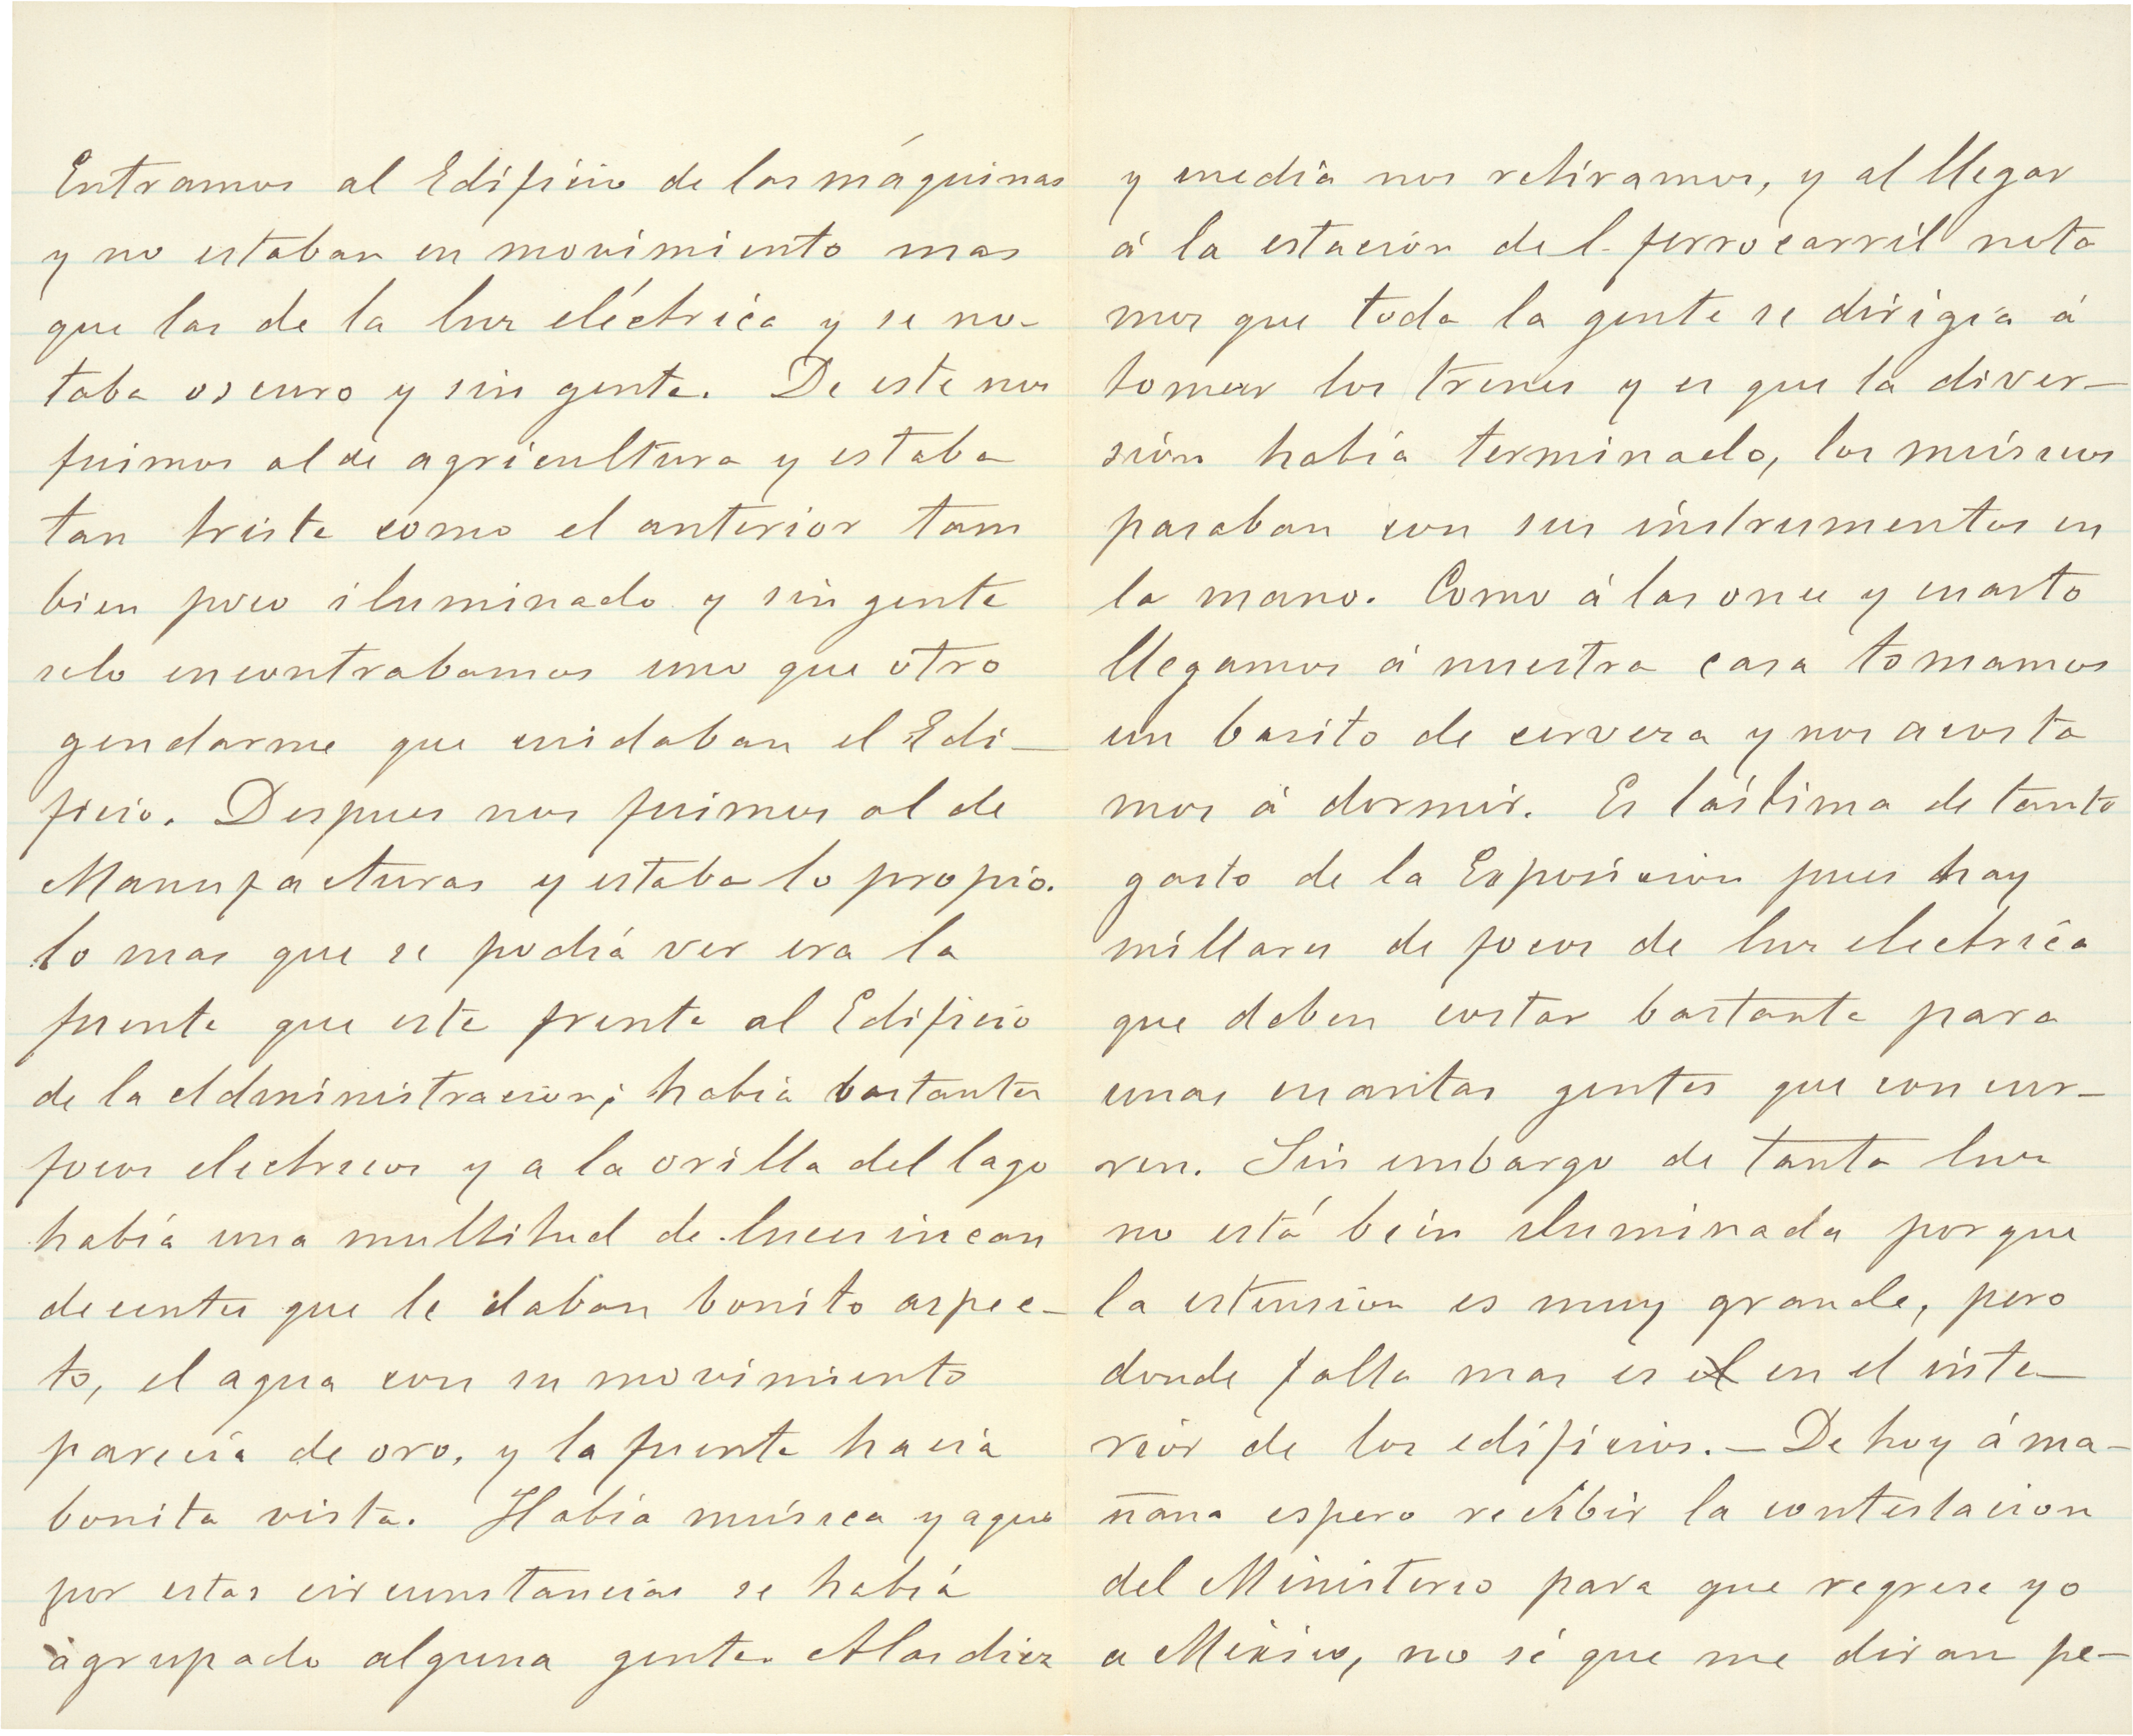 Entramos al Edificio de las máquinas
y no estaban en movimiento mas
que las de la luz eléctrica y se no-
taba oscuro y sin gente. De este nos
fuimos al de agricultura y estaba
tan triste como el anterior tam
bien poco iluminado y sin gente
solo encontrabamos uno que otro
gendarme que cuidaban el Edi-
ficio. Despues nos fuimos al de
Manufacturas y estaba lo propio.
lo mas que se podía ver era la
fuente que esta frente al Edificio
de la Administración; había bastantes
focos electricos y a la orilla del lago
había una multitud de luces incan
decentes que le daban bonito aspec-
to, el agua con su movimiento
parecía de oro, y la fuente hacía
bonita vista. Había música y agua
por estas circunstancias se había
agrupado alguna gente. A las diez
y media nos retiramos, y al llegar
á la estación del ferrocarril nota
mos que toda la gente se dirigía á
tomar los trenes y es que la diver-
sión había terminado, los músicos
pasaban con sus instrumentos en
la mano. Como á las once y cuarto
llegamos á nuestra casa tomamos
un basito de cerveza y nos acosta
mos á dormir. Es lástima de tanto
gasto de la Exposicion pues hay
millares de focos de luz electrica
que deben costar bastante para
unas cuantas gentes que concur-
ren. Sin embargo de tanta luz
no está bein iluminada porque
la estension es muy grande, pero
donde falta mas es el en el inte-
rior de los edificios.- De hoy á ma-
ñana espero recibir la contestacion
del Ministerio para que regrese yo
a México, no sé que me diran pe-